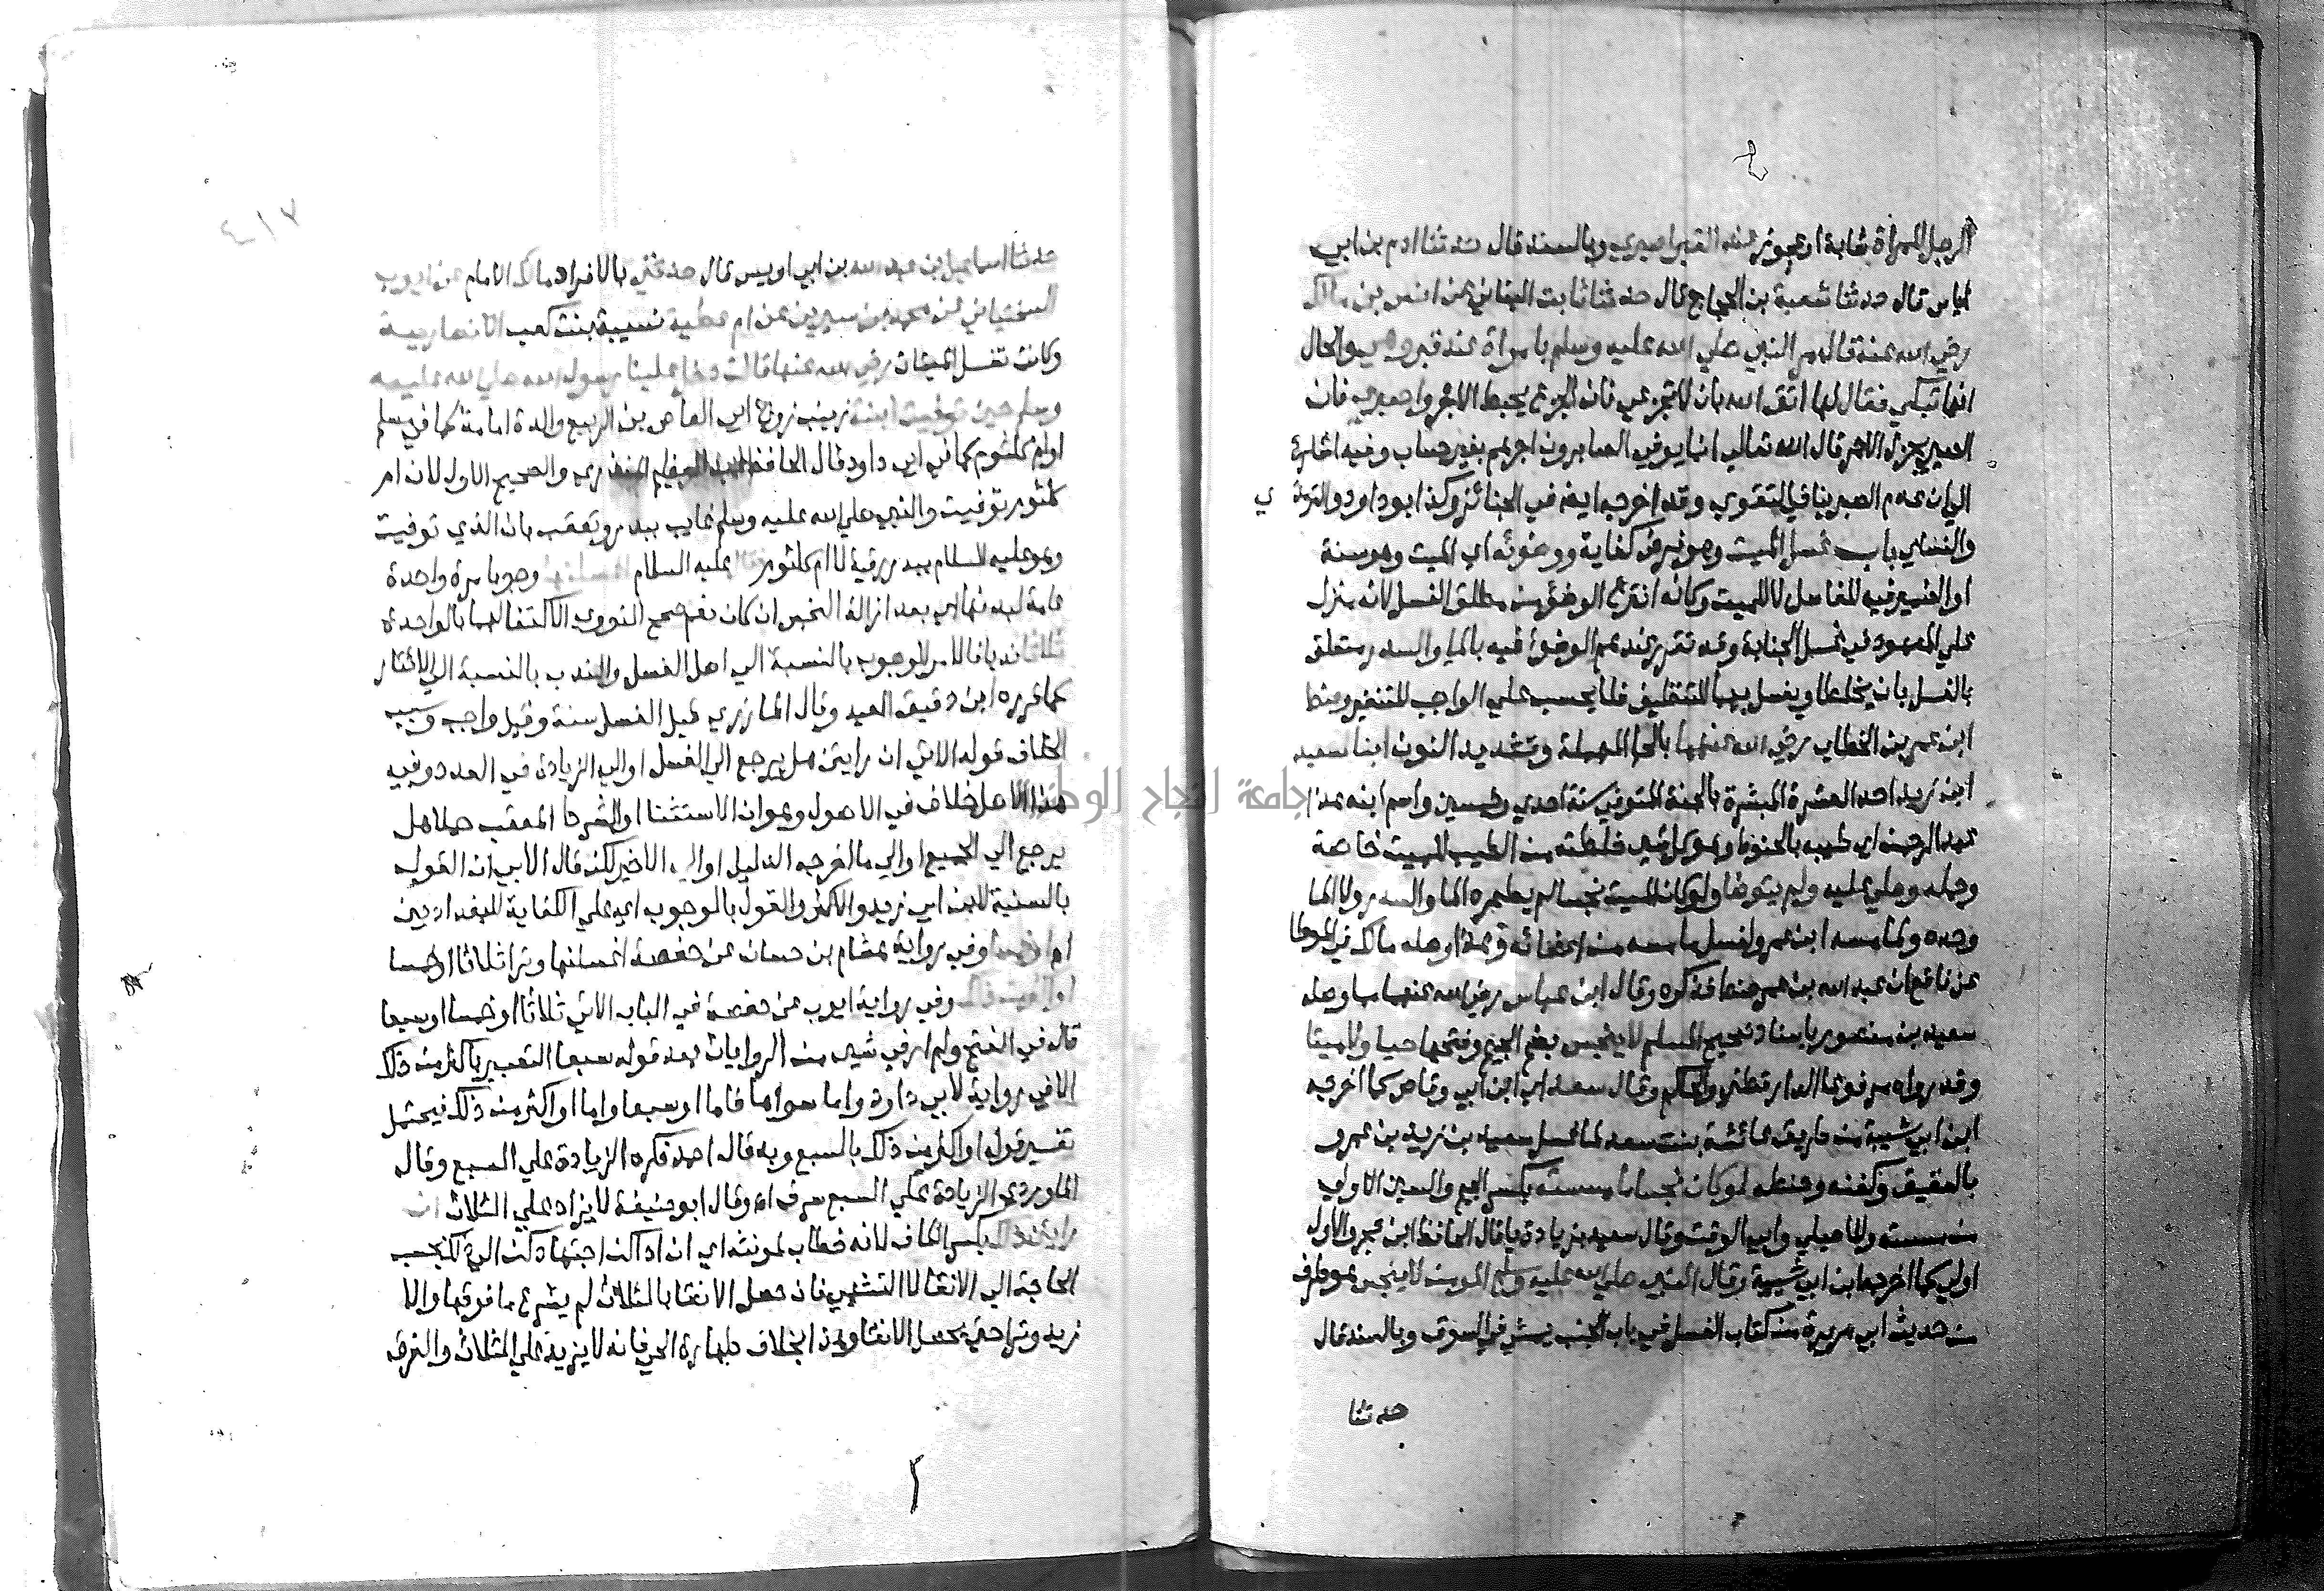 الرجل للمراة شابة او عجوز عند القبر اصبري وبالسند قال حدثنا ادم بن ابي
اياس قال حدثنا شعبة بن الحجاج قال حدثنا ثابت البناني عن انس بن مالك
رضي الله عنه قال مر النبي صلي الله عليه وسلم بامراة عند قبر وهي والحال
انها تبكي فقال لها اتقي الله بان لا تجزعي فان الجزع يحبط الاجر واصبري فان
الصبر يجزل الاجر قال الله تعالي انما يوفي الصابرون اجرهم بغير حساب وفيه اشارة
الي ان عدم الصبر ينافي التقوي وقد اخرجه ايضا في الجنائز وكذا ابو داود والترمذي
والنساي باب غسل الميت وهو فرض كفاية ووضوئه اي الميت وهو سنة
او الضمير فيه للغاسل لا للميت وكانه انتزع الوضوء من مطلق الغسل لانه منزل
علي المعهود في غسل الجنابة وقد تقرر عندهم الوضوء فيه بالما والسدر متعلق
بالغسل بان يخلطا ويغسل بهما للتنظيف فلا يحسب علي الواجب للتغير وحنط
ابن عمر بن الخطاب رضي الله عنهما بالحا المهملة وتشديد النون ابنا لسعيد
ابن زيد احد العشرة المبشرة بالجنة المتوفي سنة احدي وخمسين واسم ابنه هذا
عبد الرحمن اي طيبه بالحنوط وهو كل شي خلطته من الطيب للميت خاصة
وحمله وصلي عليه ولم يتوضا ولو كان الميت نجسا لم يطهره الما والسدر ولا الما
وحده ولما مسه ابن عمر ولغسل ما مسه من اعضائه وهذا وصله مالك في الموطا
عن نافع ان عبد الله بن عمر حنط فذكره وقال ابن عباس رضي الله عنهما مما وصله
سعيد بن منصور باسناد صحيح المسلم لا ينجس بضم الجيم وفتحها حيا ولا ميتا
وقد رواه مرفوعا الدارقطني والحاكم وقال سعد اي ابن ابي وقاص كما اخرجه
ابن ابي شيبة من طريق عائشة بنت سعد لما غسل سعيد بن زيد بن عمرو
بالعقيق وكفنه وحنطه لو كان نجسا ما مسسته بكسر الجيم والسين الاولي
من مسسته وللاصيلي وابي الوقت وقال سعيد بزيادة يا قال الحافظ ابن حجر والاول
اولي كما اخرجه ابن ابي شيبة وقال النبي صلي الله عليه وسلم المومن لا ينجس هو طرف
من حديث ابي هريرة من كتاب الغسل في باب الجنب يمشي في السوق وبالسند قال
حدثنا
٤١٧
حدثنا اسماعيل بن عبد الله بن ابي اويس قال حدثني بالافراد مالك الامام عن ايوب
السختياني عن محمد بن سيرين عن ام عطية نسيبة بنت كعب الانصارية
وكانت تغسل الميتات رضي الله عنها قالت دخل علينا رسول الله صلي الله عليه
وسلم حين توفيت ابنته زينب زوج ابي العاص بن الربيع والدة امامة كما في مسلم
او ام كلثوم كما في ابي داود قال الحافظ عبد العظيم المنذري والصحيح الاول لان ام
كلثوم توفيت والنبي صلي الله عليه وسلم غايب ببدر وتعقب بان الذي توفيت
وهو عليه السلام ببدر رقية لا ام كلثوم فقال عليه السلام اغسلنها وجوبا مرة واحدة
عامة لبدنها اي بعد ازالة النجس ان كان نعم صحح النووي الاكتفا لهما بالواحدة
ثلاثا ندبا فالامر للوجوب بالنسبة الي اصل الغسل والندب بالنسبة الي الايتار
كما قرره ابن دقيق العيد وقال المازري قيل الغسل سنة وقيل واجب وسبب
الخلاف قوله الاتي ان رايتن هل يرجع الي الغسل او الي الزيادة في العدد وفيه
هذا الاصل خلاف في الاصول وهو ان الاستثنا او الشرط المعقب جملا هل
يرجع الي الجميع او الي ما اخرجه الدليل او الي الاخير لكن قال الابي ان القول
بالسنية لابن ابي زيد والاكثر والقول بالوجوب اي علي الكفاية للبغداديين
او خمسا وفي رواية هشام بن حسان عن حفصة اغسلنها وترا ثلاثا او خمسا
او اكثر من ذلك وفي رواية ايوب عن حفصة في الباب الاتي ثلاثا او خمسا او سبعا
قال في الفتح ولم ار في شي من الروايات بعد قوله سبعا التعبير باكثر من ذلك
الا في رواية لابي داود واما سواها فاما او سبعا واما او اكثر من ذلك فيحتمل
تفسير قوله او اكثر من ذلك بالسبع وبه قال احمد فكره الزيادة علي السبع وقال
الماوردي الزيادة علي السبع سرف اه وقال ابو حنيفة لا يزاد علي الثلاث ان
رايتن ذلك بكسر الكاف لانه خطاب لمونثه اي ان اداكن اجتهادكن الي ذلك بحسب
الحاجة الي الانقا لا التشهي فان حصل الانقا بالثلاث لم يشرع ما فوقها والا
زيد وترا حتي يحصل الانقا وهذا بخلاف طهارة الحي فانه لا يزيد علي الثلاث والفرق
جامعة النجاح الوطنية